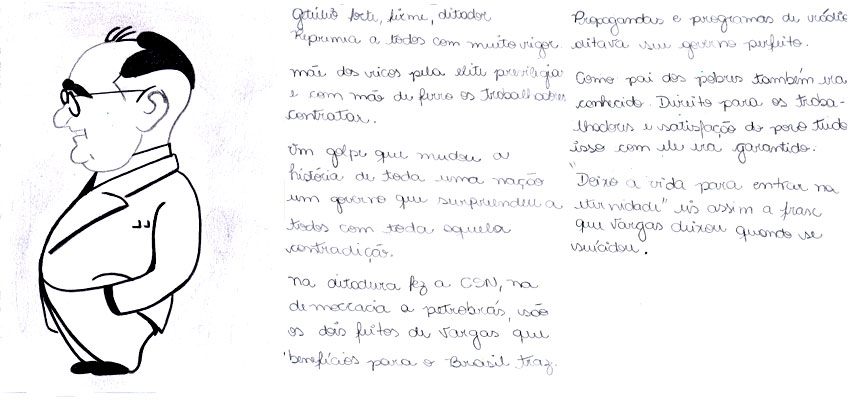 Getúlio forte, firme, ditador
Reprimia a todos com muito vigor.
mãe dos ricos pela elite previlegia
e com mão de ferro os trabalhadores
contratar.
Um golpe que mudou a
história de toda uma nação
um governo que surpreendeu a
todos com toda aquela
contradição.
na ditadura fez a CSN, na
democracia a petrobrás, são
os dois feitos de Vargas que
benefícios para o Brasil traz.
Propagandas e programas de rádio
ditava seu governo perfeito.
Como pai dos pobres também era
conhecido. Direito para os traba-
lhadores e satisfação do povo tudo
isso com ele era garantido.
"Deixo a vida para entrar na
eternidade" eis assim a frase
que Vargas deixou quando se
suicidou.